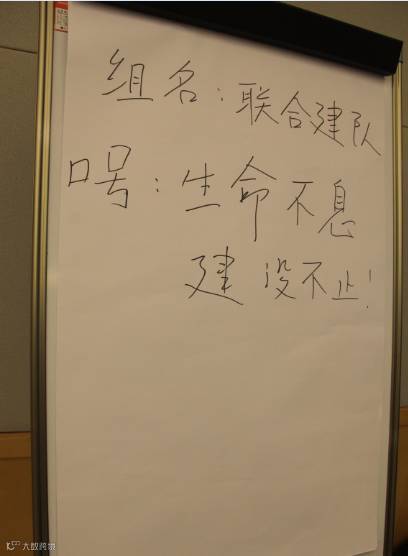 组名：联合建队
口号：生命不息
建设不止！
大数跨境